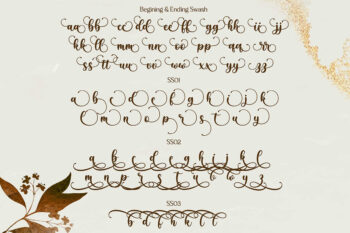 Begining & Ending Swash
aa bb cc dd ee ff gg hh ii jj
kk ll mm nn oo pp qq rr
ss tt uu vv ww xx yy zz
SS01
a b c d e f g h i j k
l m n o p r s t u y
SS02
a b c d e f g h i j k l
m n o p q r s t u v w x y z
SS03
b d f h k l t